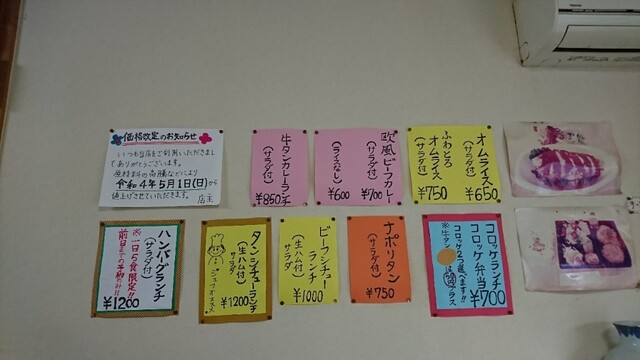 価格改定のお知らせ
いつも当店をご利用いただきまして
ありがとうございます。
原材料の高騰などにより
令和4年5月1日(日)から
値上げさせていただきます。
店主
牛タンカレーランチ
(サラダ付)
¥850
欧風ビーフカレー
(サラダ付) ¥700
(ライスなし) ¥600
オムライス
(サラダ付) ¥650
ふわとろ
オムライス
(サラダ付) ¥750
ハンバーグランチ
(サラダ付)
※一日5食限定!!
前日までの予約のみ!!
¥1200
タンシチューランチ
(生ハム付)
サラダ
¥1200
シェフオススメ
ビーフシチュー
ランチ
(生ハム付)
サラダ
¥1000
ナポリタン
(サラダ付)
¥750
コロッケランチ
コロッケ弁当
¥700
コロッケ2つ選べます!!
※牛タン
プラス